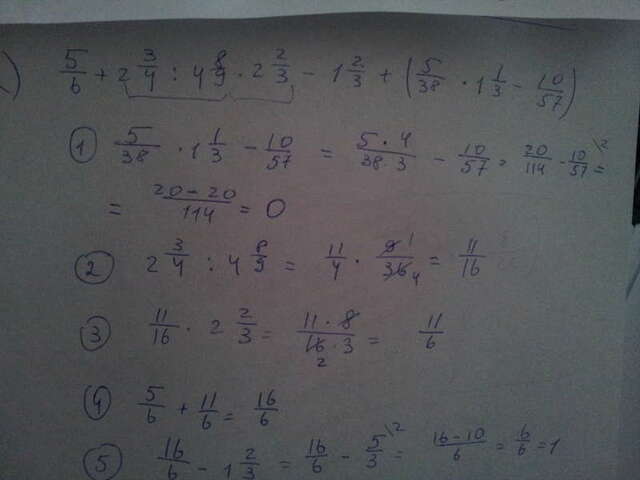 ) 5/6 + 2 3/4 : 4 8/9 · 2 2/3 - 1 2/3 + (5/38 · 1 1/3 - 10/57)
① 5/38 · 1 1/3 - 10/57 = 5·4/38·3 - 10/57 = 20/114 - 10/57 \2 =
= 20-20/114 = 0
② 2 3/4 : 4 8/9 = 11/4 · 9 1/36 4 = 11/16
③ 11/16 · 2 2/3 = 11·8/16·3 2 = 11/6
④ 5/6 + 11/6 = 16/6
⑤ 16/6 - 1 2/3 = 16/6 - 5/3 \2 = 16-10/6 = 6/6 = 1